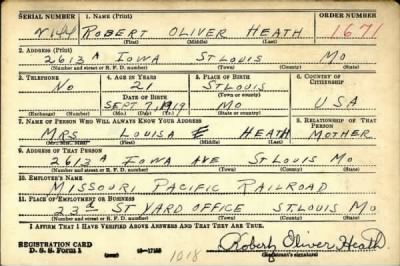 SERIAL NUMBER 1. NAME (Print) ORDER NUMBER
N 144 ROBERT OLIVER HEATH 1671
(First) (Middle) (Last)
2. ADDRESS (Print)
2613 A IOWA ST LOUIS MO
(Number and street or R. F. D. number) (Town) (County) (State)
3. TELEPHONE 4. AGE IN YEARS 5. PLACE OF BIRTH 6. COUNTRY OF CITIZENSHIP
NO 21 ST LOUIS
DATE OF BIRTH (Town or county)
SEPT. 7, 1919 MO USA
(Exchange) (Number) (Mo.) (Day) (Yr.) (State or country)
7. NAME OF PERSON WHO WILL ALWAYS KNOW YOUR ADDRESS 8. RELATIONSHIP OF THAT PERSON
MRS LOUISA E HEATH MOTHER
(Mr., Mrs., Miss) (First) (Middle) (Last)
9. ADDRESS OF THAT PERSON
2613 A IOWA AVE ST LOUIS MO
(Number and street or R. F. D. number) (Town) (County) (State)
10. EMPLOYER'S NAME
MISSOURI PACIFIC RAILROAD
11. PLACE OF EMPLOYMENT OR BUSINESS
23d ST YARD OFFICE ST. LOUIS MO
(Number and street or R. F. D. number) (Town) (County) (State)
I AFFIRM THAT I HAVE VERIFIED ABOVE ANSWERS AND THAT THEY ARE TRUE.
REGISTRATION CARD
D. S. S. Form 1 (over) 1018 Robert Oliver Heath
(Registrant's signature)